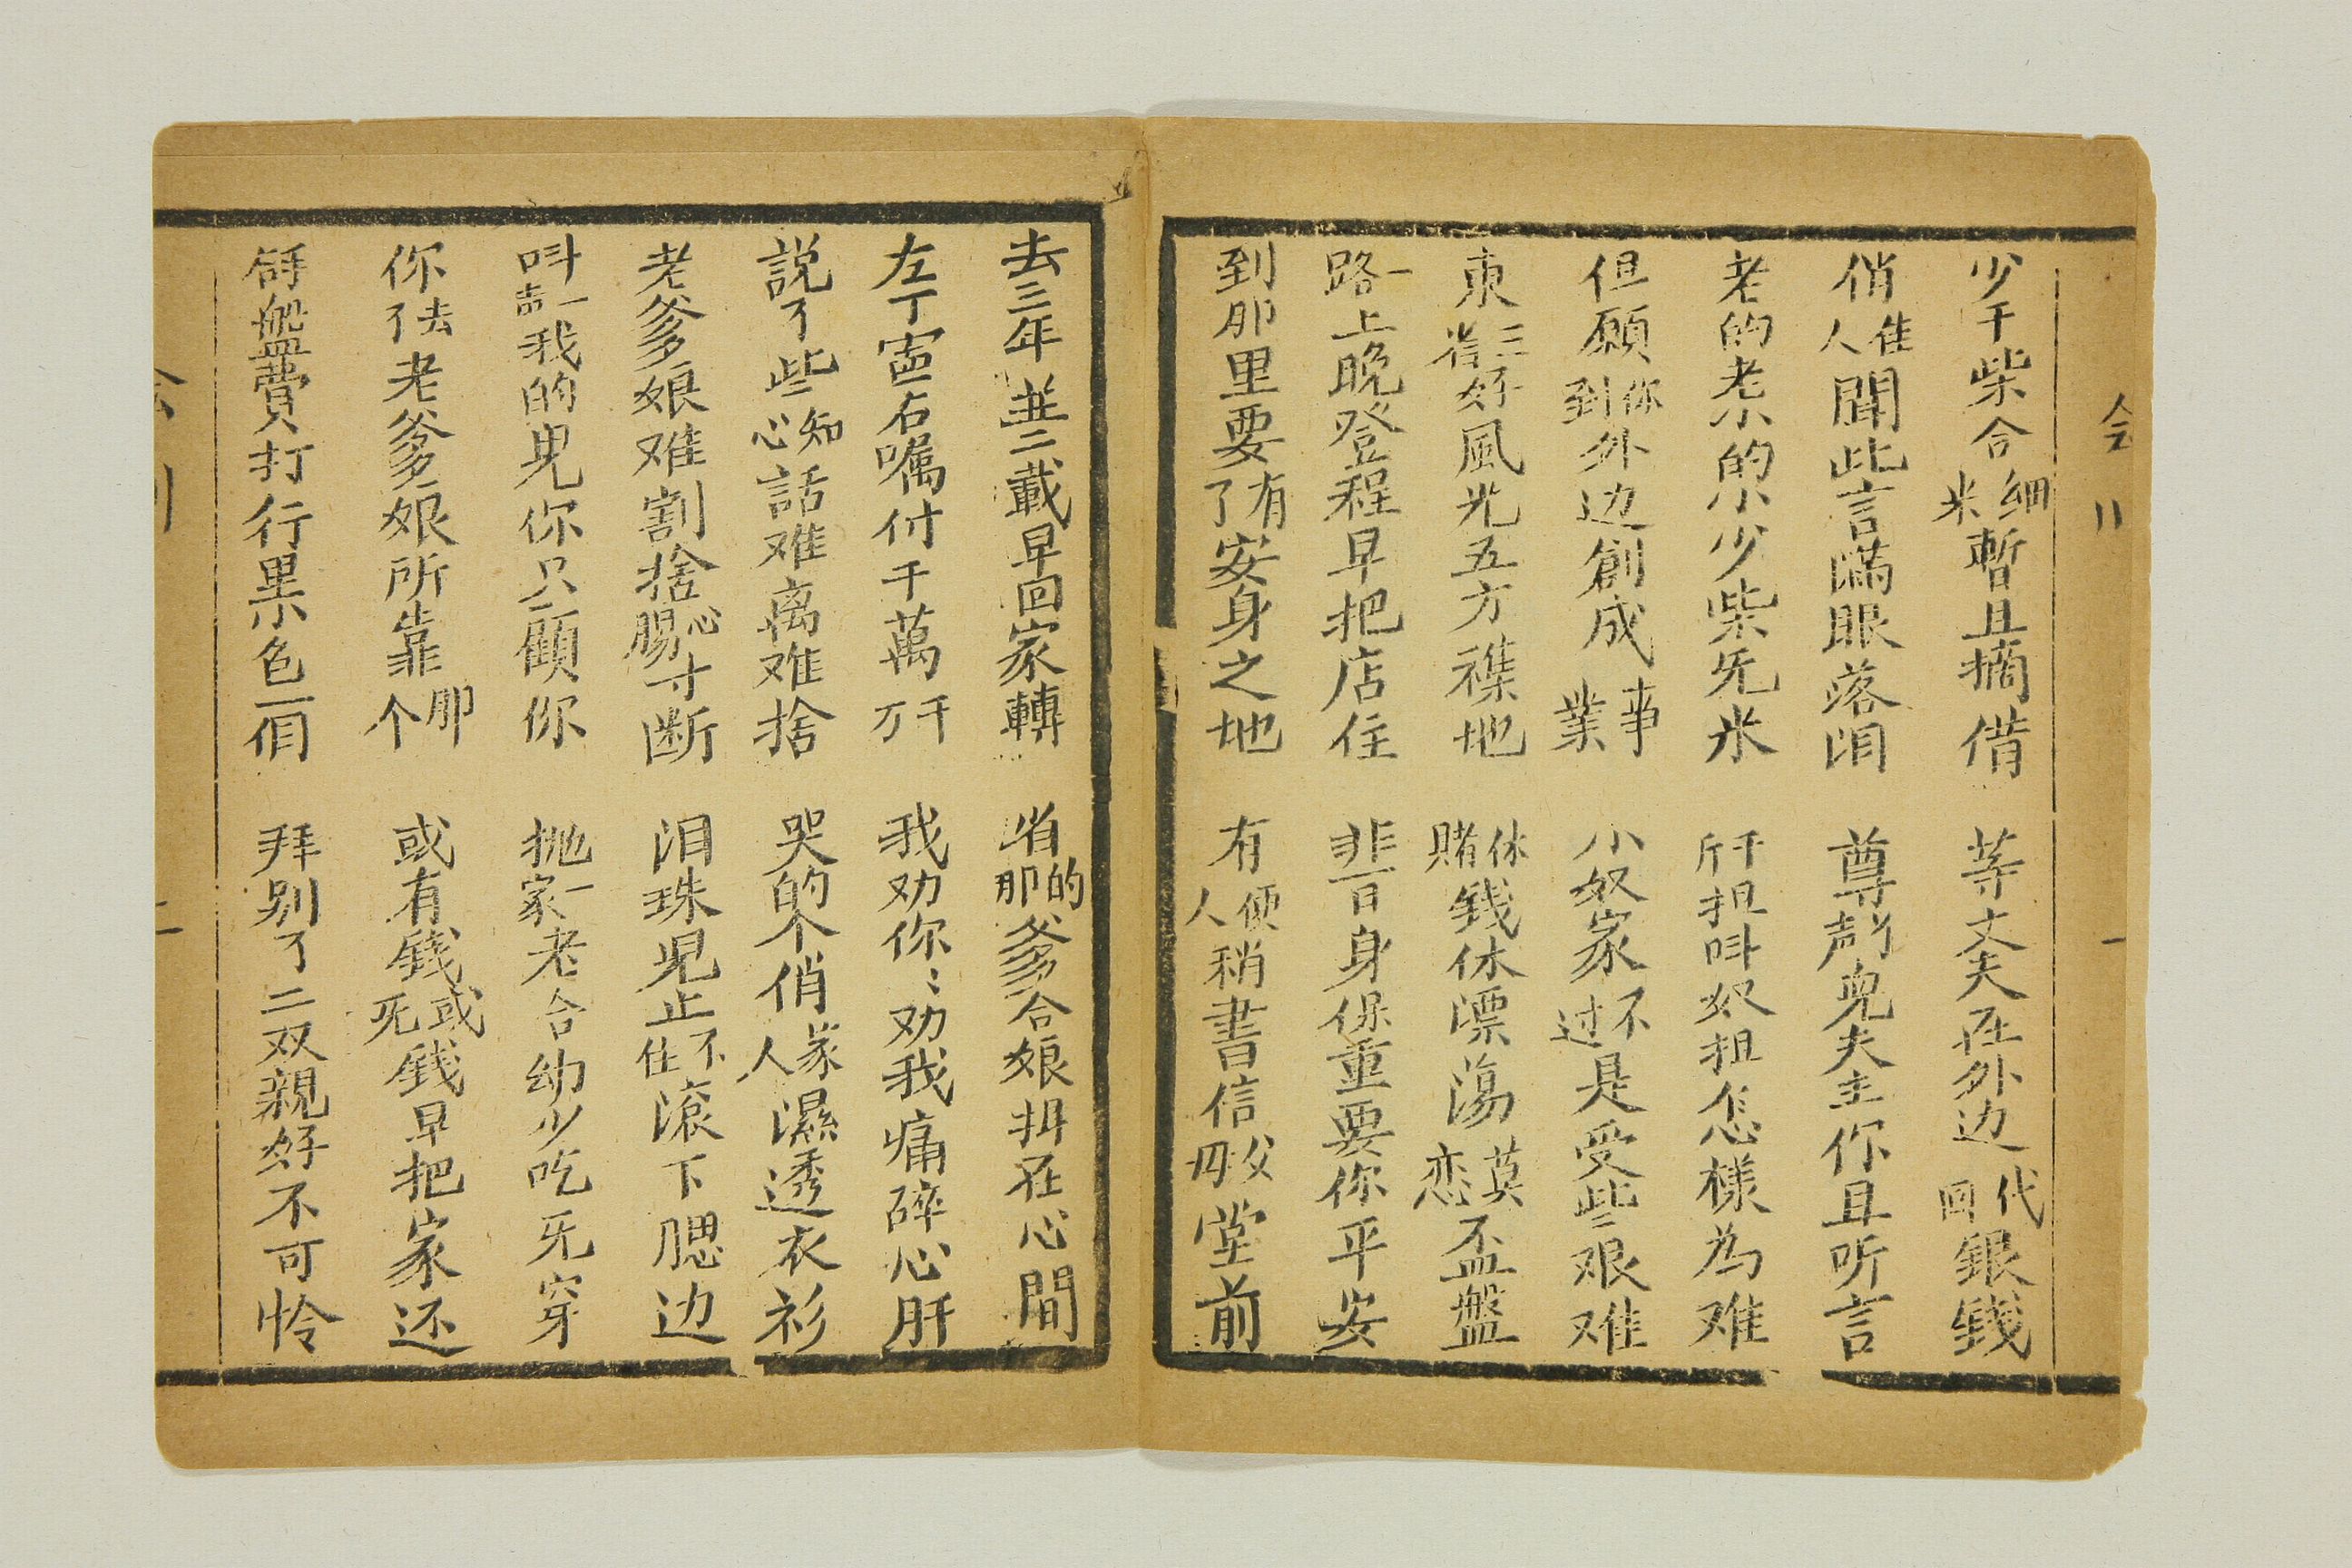 少干柴合細米暫且摘借 等丈夫在外边代回銀錢
俏佳人聞此言滿眼落泪 尊一声兒夫主你且听言
老的老小的小少柴无米 千斤担叫奴担怎樣為难
但願你到外边創成事業 小奴家不过是受些艰难
東三省好風光五方襍地 休賭錢休漂蕩莫恋盃盤
一路上晚登程早把店住 非一日身保重要你平安
到那里要有了安身之地 有便人稍書信父母堂前
去三年並二載早回家轉 省的那爹合娘挂在心間
左丁寧右嘱付千萬千万 我劝你你劝我痛碎心肝
説了些知心話难离难捨 哭的个俏家人濕透衣衫
老爹娘难割捨心腸寸断 泪珠兒止不住滚下腮边
叫一声我的兒你只顧你 抛一家老合幼少吃无穿
你去了老爹娘所靠那个 或有錢或无錢早把家还
盤費打行里小包一個 拜别了二双親好不可怜